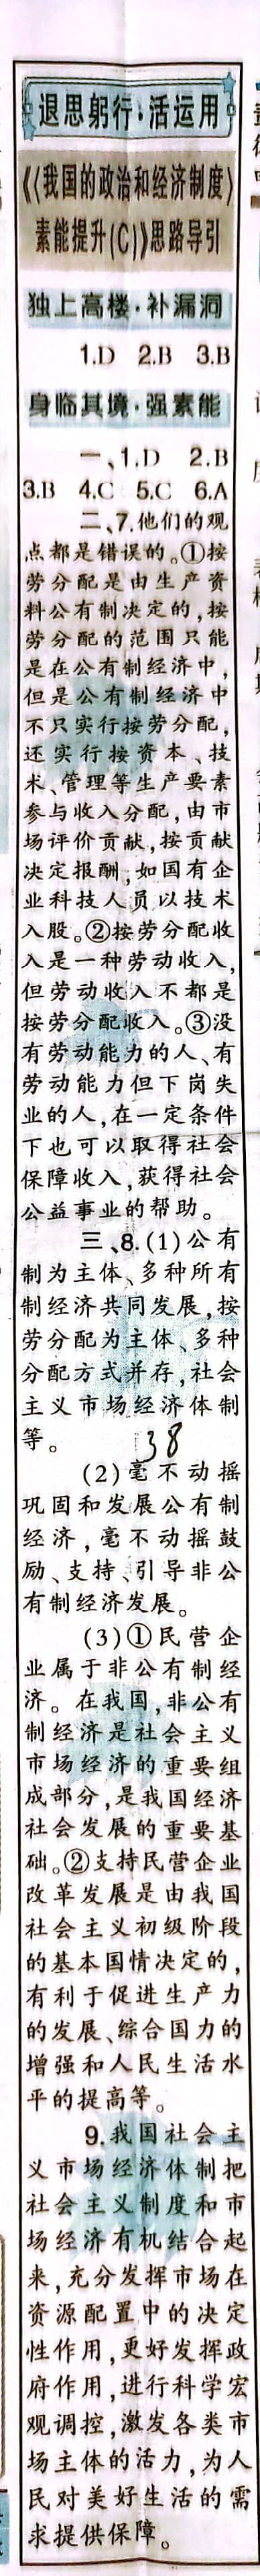 退思躬行·活运用
《〈我国的政治和经济制度〉
素能提升(C)》思路导引
独上高楼·补漏洞
1.D 2.B 3.B
身临其境·强素能
一、1.D 2.B
3.B 4.C 5.C 6.A
二、7.他们的观
点都是错误的。①按
劳分配是由生产资
料公有制决定的,按
劳分配的范围只能
是在公有制经济中,
但是公有制经济中
不只实行按劳分配,
还实行按资本、技
术、管理等生产要素
参与收入分配,由市
场评价贡献,按贡献
决定报酬,如国有企
业科技人员以技术
入股。②按劳分配收
入是一种劳动收入,
但劳动收入不都是
按劳分配收入。③没
有劳动能力的人、有
劳动能力但下岗失
业的人,在一定条件
下也可以取得社会
保障收入,获得社会
公益事业的帮助。
三、8.(1)公有
制为主体、多种所有
制经济共同发展,按
劳分配为主体、多种
分配方式并存,社会
主义市场经济体制
等。
38
(2)毫不动摇
巩固和发展公有制
经济,毫不动摇鼓
励、支持、引导非公
有制经济发展。
(3)①民营企
业属于非公有制经
济。在我国,非公有
制经济是社会主义
市场经济的重要组
成部分,是我国经济
社会发展的重要基
础。②支持民营企业
改革发展是由我国
社会主义初级阶段
的基本国情决定的,
有利于促进生产力
的发展、综合国力的
增强和人民生活水
平的提高等。
9.我国社会主
义市场经济体制把
社会主义制度和市
场经济有机结合起
来,充分发挥市场在
资源配置中的决定
性作用,更好发挥政
府作用,进行科学宏
观调控,激发各类市
场主体的活力,为人
民对美好生活的需
求提供保障。